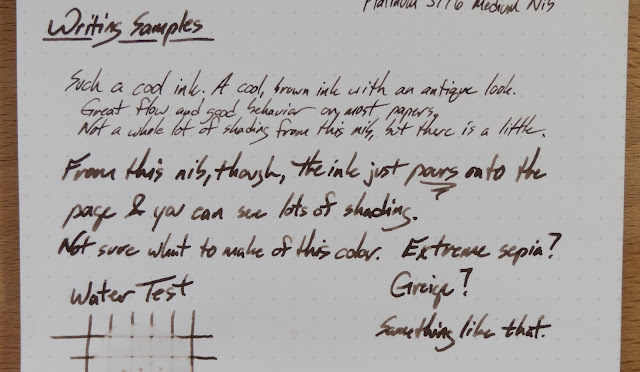 Platinum 3776 Medium Nib
Writing Samples
Such a cool ink. A cool, brown ink with an antique look.
Great flow and good behavior on most papers.
Not a whole lot of shading from this nib, but there is a little.
From this nib, though, the ink just pours onto the
page & you can see lots of shading.
Not sure what to make of this color. Extreme sepia?
Greige?
Something like that.
Water Test